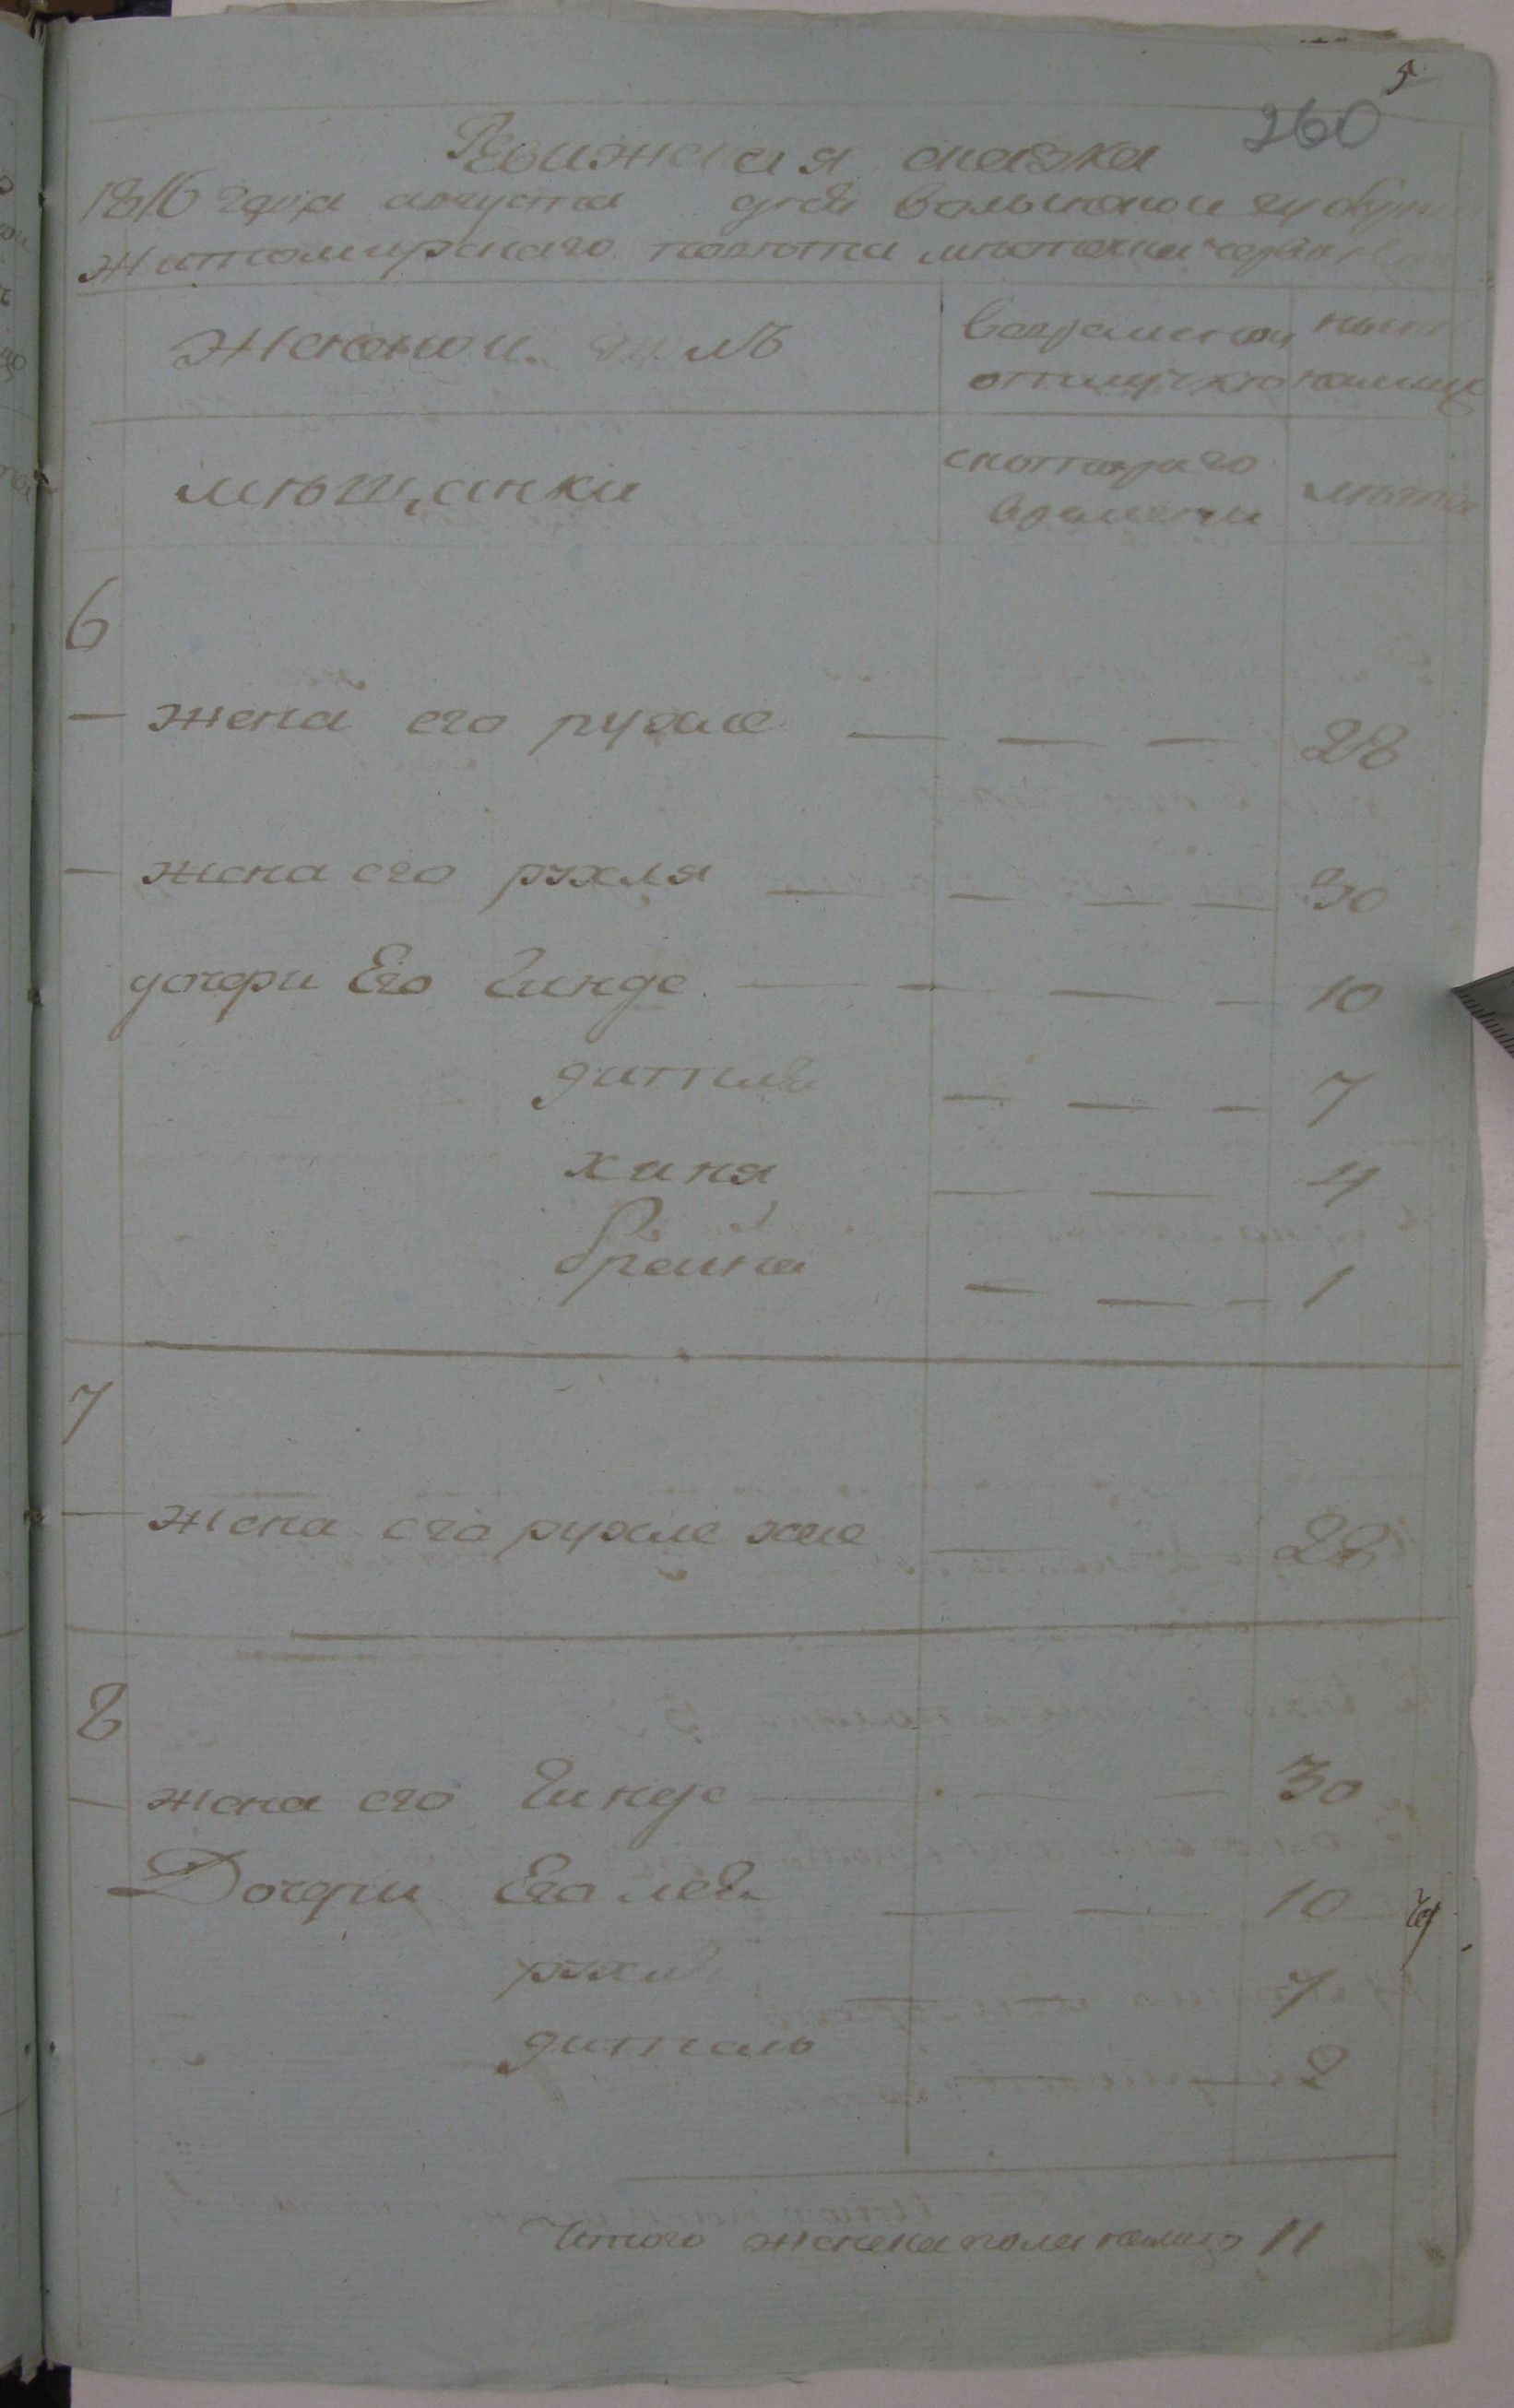 5
260
Ревижская сказка
1816 года августа дня Волынской губернии
Житомирского повета местечка
Женской полъ
во временной отлучке
ныне налицо
мещанки
с которого времени
лета
6
— жена его рухле — — — 28
— жена его рухля — — — — 30
дочери Его Гинде — — — — 10
дитля — — — 7
хиня — — 4
браина — — — 1
7
— жена его рухле хае — — 28
8
— жена его Гинде — — — 30
Дочери Его лея — — 10
рухля — 7
диталь — 2
Итого женска пола налицо 11